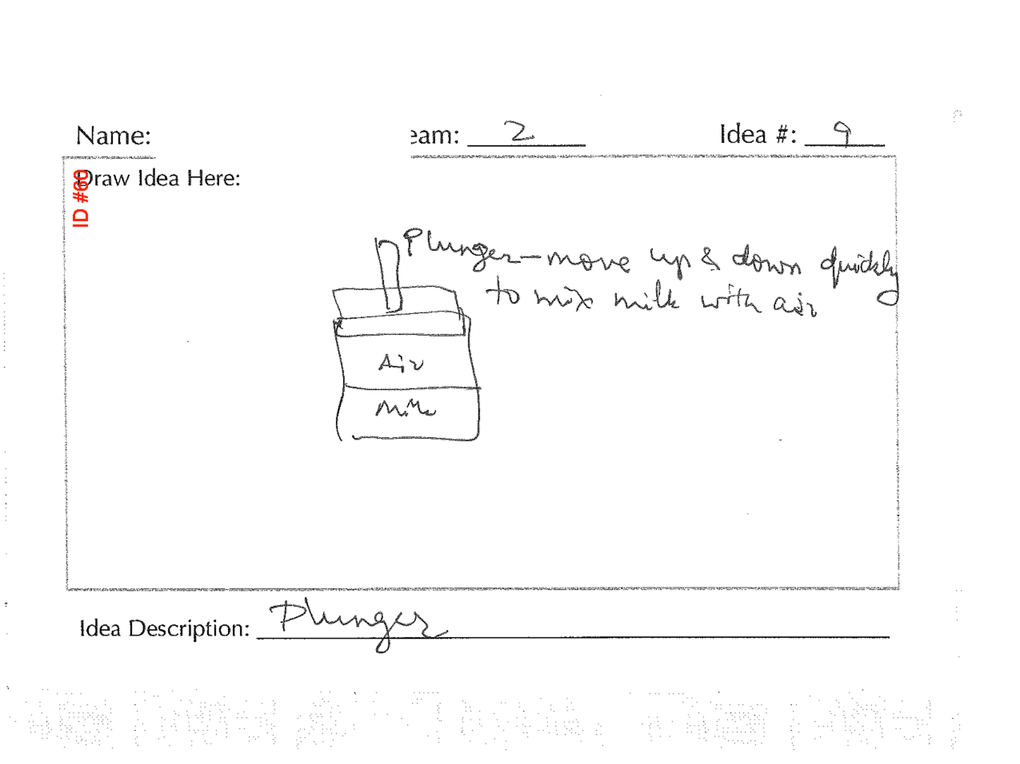 Name:
eam: 2
Idea #: 9
ID #60
Draw Idea Here:
Plunger - move up & down quickly
to mix milk with air
Air
Milk
Idea Description: Plunger